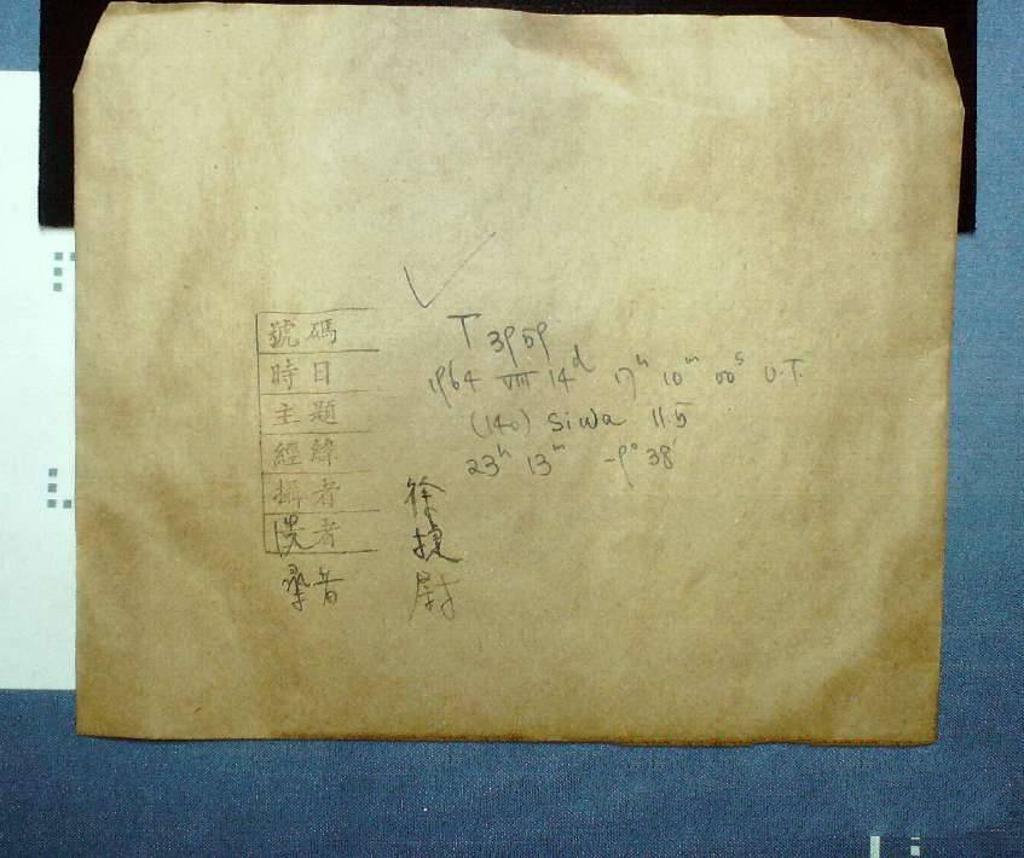 號碼 T 3959
時日 1964 VIII 14d 17h 10m 00s U.T.
主題 (140) Siwa 11.5
經緯 23h 13m -9° 38'
攝者 徐
者 捷
尉